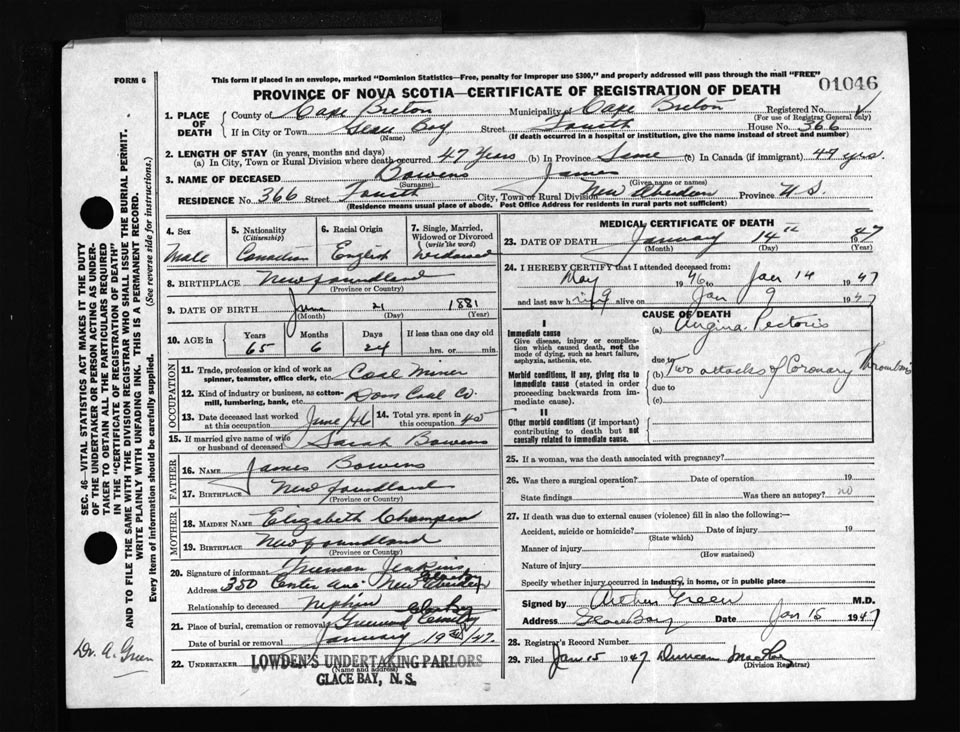 FORM 6
This form if placed in an envelope, marked "Dominion Statistics—Free, penalty for improper use $300," and properly addressed will pass through the mail "FREE"
01046
PROVINCE OF NOVA SCOTIA—CERTIFICATE OF REGISTRATION OF DEATH
1. PLACE OF DEATH
County of Cape Breton Municipality of Cape Breton Registered No.
(For use of Registrar General only)
If in City or Town Glace Bay Street Fourth House No. 366
(Name) (If death occurred in a hospital or institution, give the name instead of street and number)
2. LENGTH OF STAY (in years, months and days)
(a) In City, Town or Rural Division where death occurred 47 Years (b) In Province Same (c) In Canada (if immigrant) 47 yrs.
3. NAME OF DECEASED Bowens James
(Surname) (Given name or names)
RESIDENCE No. 366 Street Fourth City, Town or Rural Division New Aberdeen Province N.S.
(Residence means usual place of abode. Post Office Address for residents in rural parts not sufficient)
4. Sex Male
5. Nationality (Citizenship) Canadian
6. Racial Origin English
7. Single, Married, Widowed or Divorced (write the word) Widowed
8. BIRTHPLACE Newfoundland
(Province or Country)
9. DATE OF BIRTH June 21 1881
(Month) (Day) (Year)
10. AGE in Years Months Days If less than one day old
65 6 24 hrs. or min.
OCCUPATION
11. Trade, profession or kind of work as spinner, teamster, office clerk, etc. Coal Miner
12. Kind of industry or business, as cotton-mill, lumbering, bank, etc. Dom Coal Co.
13. Date deceased last worked at this occupation June/46
14. Total yrs. spent in this occupation 40
15. If married give name of wife or husband of deceased Sarah Bowens
FATHER
16. NAME James Bowens
17. BIRTHPLACE Newfoundland
(Province or Country)
MOTHER
18. MAIDEN NAME Elizabeth
19. BIRTHPLACE Newfoundland
(Province or Country)
20. Signature of informant Jenkins
Address 350 Center Ave New Aberdeen
Relationship to deceased Nephew
21. Place of burial, cremation or removal Greenwood Cemetery Glace Bay
Date of burial or removal January 19th/47.
22. UNDERTAKER LOWDEN'S UNDERTAKING PARLORS
(Name and address)
GLACE BAY, N. S.
MEDICAL CERTIFICATE OF DEATH
23. DATE OF DEATH January 14th 1947
(Month) (Day) (Year)
24. I HEREBY CERTIFY that I attended deceased from:
May 1946 to Jan 14 1947
and last saw him alive on Jan 9 1947
CAUSE OF DEATH
I
Immediate cause
Give disease, injury or complication which caused death, not the mode of dying, such as heart failure, asphyxia, asthenia, etc.
(a) Angina Pectoris
due to
Morbid conditions, if any, giving rise to immediate cause (stated in order proceeding backwards from immediate cause).
(b) Two attacks of Coronary Thrombosis
due to
(c)
II
Other morbid conditions (if important) contributing to death but not causally related to immediate cause.
25. If a woman, was the death associated with pregnancy?
26. Was there a surgical operation? Date of operation 19
State findings Was there an autopsy? no
27. If death was due to external causes (violence) fill in also the following:—
Accident, suicide or homicide? Date of injury 19
(State which)
Manner of injury
(How sustained)
Nature of injury
Specify whether injury occurred in industry, in home, or in public place
Signed by Arthur Green M.D.
Address Glace Bay Date Jan 15 1947
28. Registrar's Record Number
29. Filed Jan 15 1947 Duncan
(Division Registrar)
SEC. 46—VITAL STATISTICS ACT MAKES IT THE DUTY
OF THE UNDERTAKER OR PERSON ACTING AS UNDER-
TAKER TO OBTAIN ALL THE PARTICULARS REQUIRED
IN THE "CERTIFICATE OF REGISTRATION OF DEATH"
AND TO FILE THE SAME WITH THE DIVISION REGISTRAR WHO SHALL ISSUE THE BURIAL PERMIT.
WRITE PLAINLY WITH UNFADING INK. THIS IS A PERMANENT RECORD.
Every item of information should be carefully supplied. (See reverse side for instructions.)
Dr. A. Green